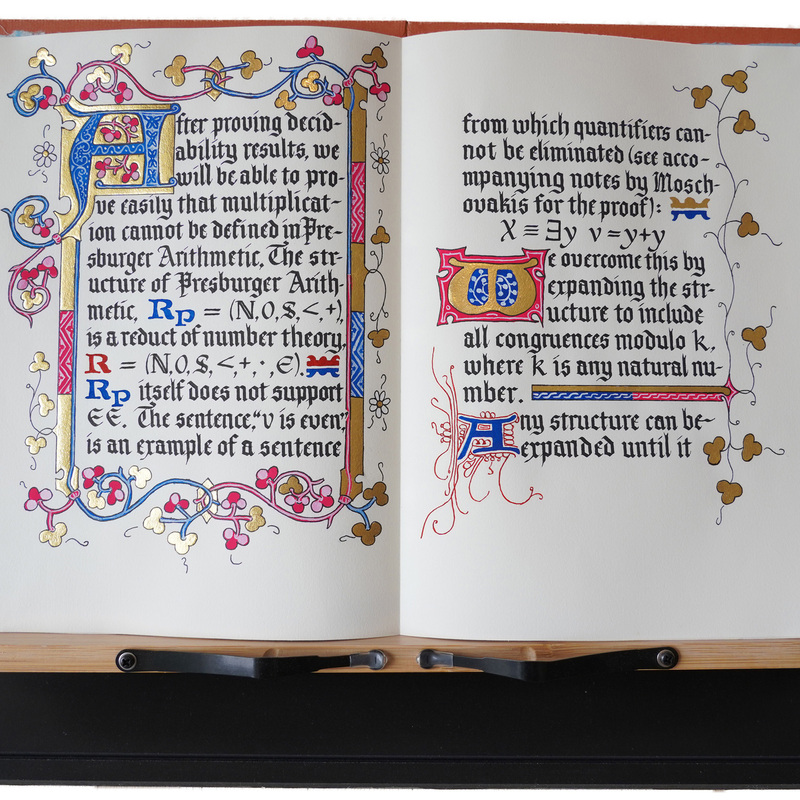 After proving decid-
ability results, we
will be able to pro-
ve easily that multiplicat-
ion cannot be defined in Pre-
sburger Arithmetic. The str-
ucture of Presburger Arith-
metic, Rp = (N,0,S,<,+),
is a reduct of number theory,
R = (N,0,S,<,+,·,E).
Rp itself does not support
EE. The sentence,“v is even”,
is an example of a sentence
from which quantifiers can-
not be eliminated (see acco-
mpanying notes by Mosch-
ovakis for the proof):
X ≡ ∃y v=y+y
We overcome this by
expanding the str-
ucture to include
all congruences modulo k,
where k is any natural nu-
mber.
Any structure can be
expanded until it